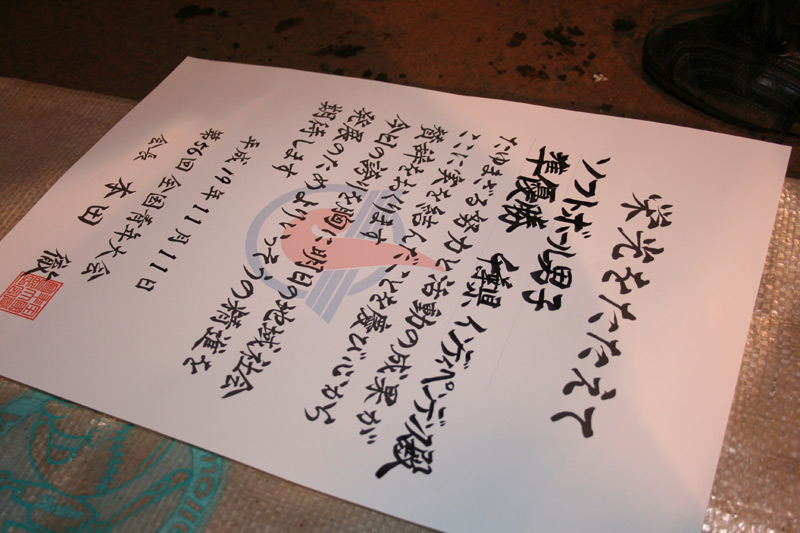 栄光をたたえて
ソフトボール男子
準優勝 インディペンデンス殿
たゆまざる努力と活動の成果が
ここに実を結んだことを慶び心から
賛辞をおくります
今回の誇りを胸に明日の地域社会
発展のためよりいっそうの精進を
期待します
平成19年11月11日
第56回全国青年大会
会長 本田 敏